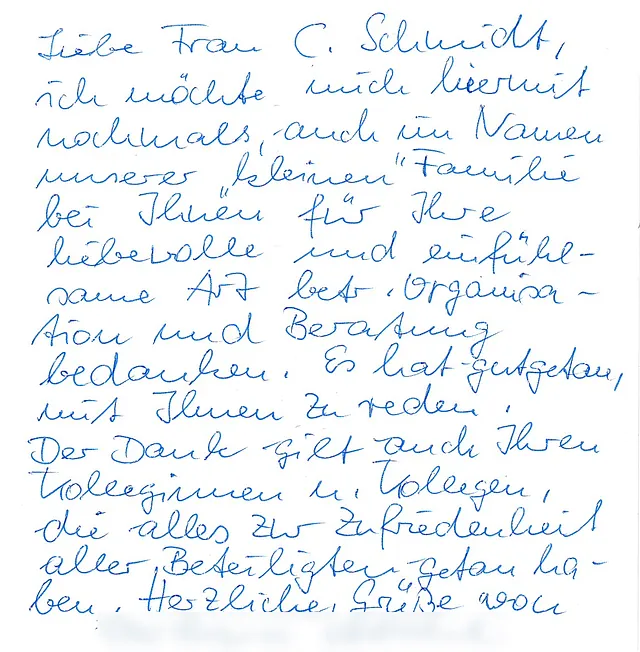 Liebe Frau C. Schmidt,
ich möchte mich hiermit
nochmals, auch im Namen
unserer „kleinen“ Familie
bei Ihnen für Ihre
liebevolle und einfühl-
same Art betr. Organisa-
tion und Beratung
bedanken. Es hat gutgetan,
mit Ihnen zu reden.
Der Dank gilt auch Ihren
Kolleginnen u. Kollegen,
die alles zur Zufriedenheit
aller Beteiligten getan ha-
ben. Herzliche Grüße von